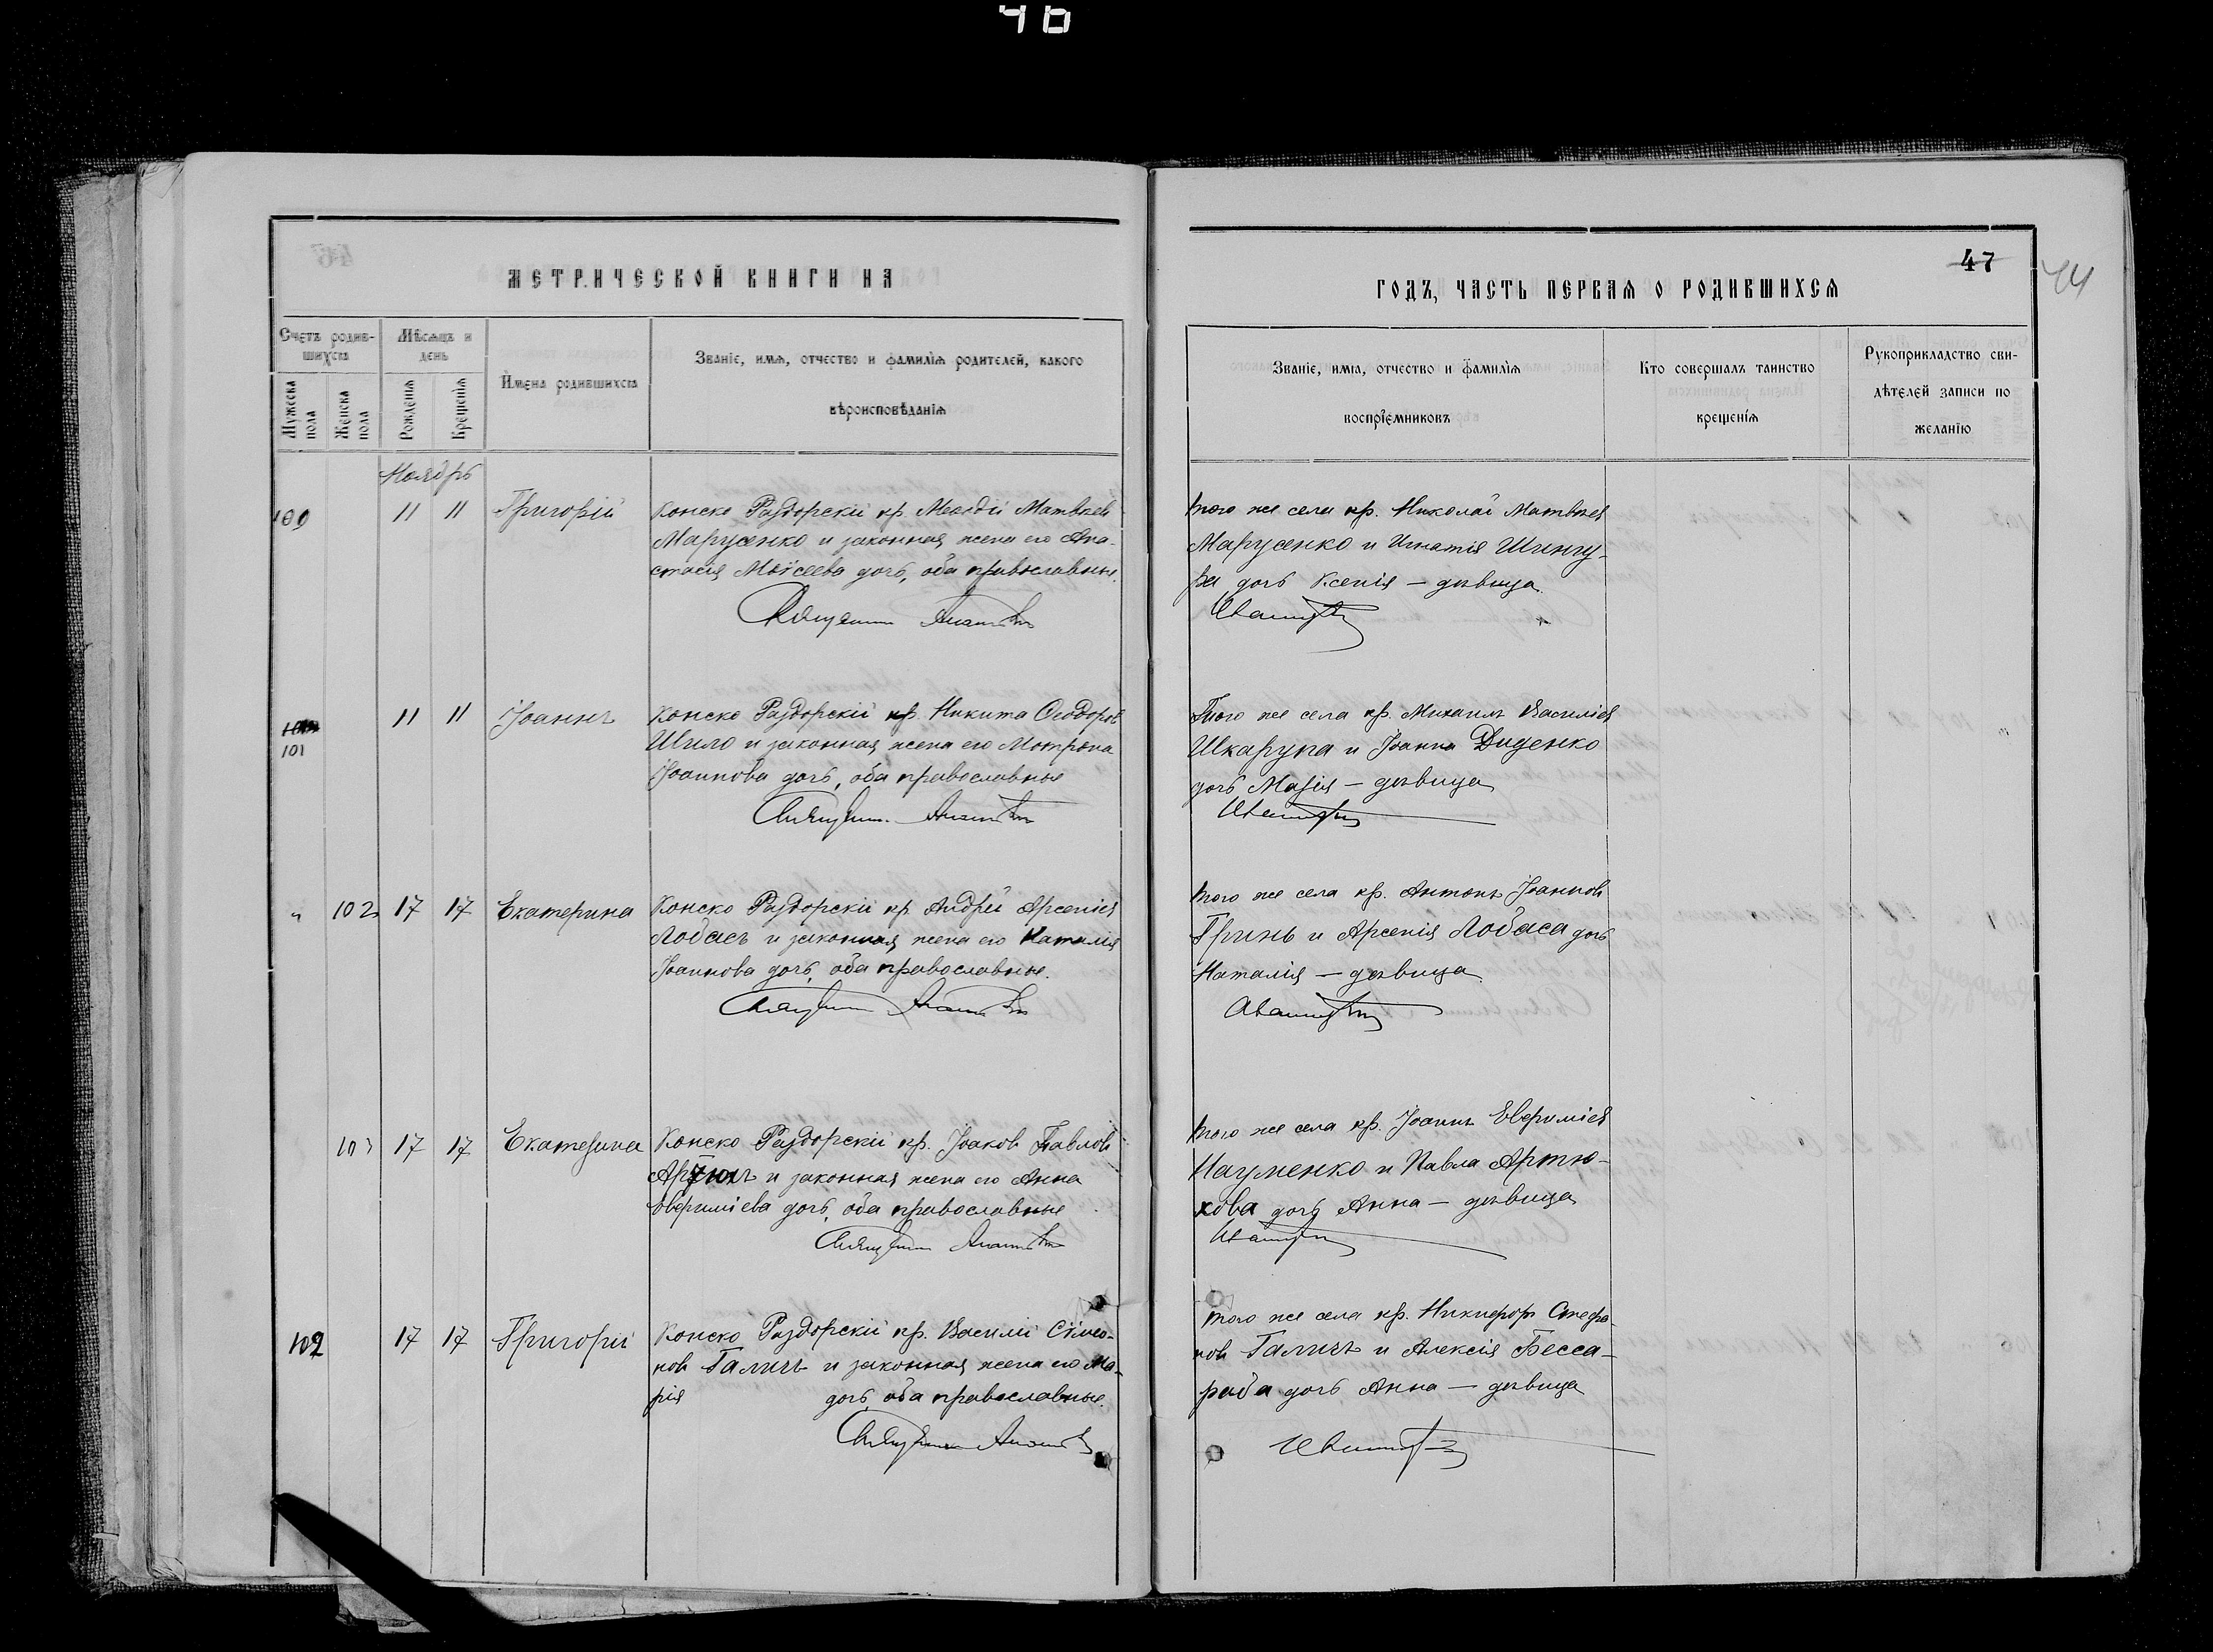 46
МЕТРИЧЕСКОЙ КНИГИ НА
Счетъ родив-
шихся
Мѣсяцъ и
день
Мужеска
пола
Женска
пола
Рожденія
Крещенія
Имена родившихся
Званіе, имя, отчество и фамилія родителей, какого
вѣроисповѣданія
Ноябрь
100 11 11 Григорій Конско Раздорскій кр. Матвѣевъ
Марусенко и законная жена его Ана-
стасія Моѵсеева дочь, оба православные.
11 11 Іоаннъ Конско Раздорскій кр. Никита Ѳеодоровъ
101 Шило и законная жена его Мотрона
Іоаннова дочь, оба православные
" 102 17 17 Екатерина Конско Раздорскій кр. Андрей Арсеніев
Лобасъ и законная жена его Наталія
Іоаннова дочь, оба православные.
103 17 17 Екатерина Конско Раздорскій кр. Іоаковъ Павловъ
Артюхъ и законная жена его Анна
Евфиміева дочь, оба православные
102 17 17 Григорій Конско Раздорскій кр. Василій Сѵмео-
новъ Галичъ и законная жена его Ма-
рія дочь, оба православные.
47
44
ГОДЪ, ЧАСТЬ ПЕРВАЯ О РОДИВШИХСЯ
Званіе, имя, отчество и фамилія
воспріемниковъ
Кто совершалъ таинство
крещенія
Рукоприкладство сви-
дѣтелей записи по
желанію
того же села кр. Николай Матвѣев
Марусенко и Игнатія Шингу-
ра дочь Ксенія — дѣвица.
Того же села кр. Михаилъ Василіев
Шкарупа и Іоанна Диденко
дочь Марія — дѣвица
того же села кр. Антонъ Іоанновъ
Гринь и Арсенія Лобаса дочь
Наталія — дѣвица
того же села кр. Іоаннъ Евфиміев
Науменко и Павла Артю-
хова дочь Анна — дѣвица
того же села кр. Никифоръ Стефа-
новъ Галичъ и Алексія Бесса-
раба дочь Анна — дѣвица